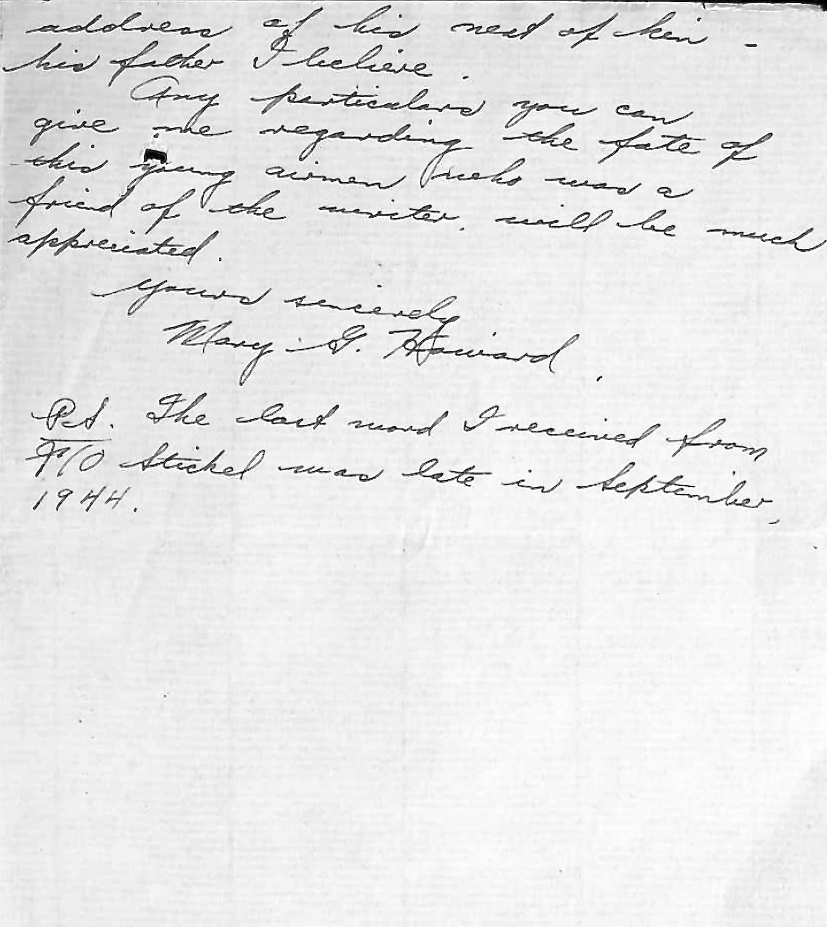 address of his next of kin -
his father I believe.
Any particulars you can
give me regarding the fate of
this young airmen who was a
friend of the writer, will be much
appreciated.
Yours sincerely
Mary G. Howard.
P.S. The last word I received from
F/O Stickel was late in September,
1944.